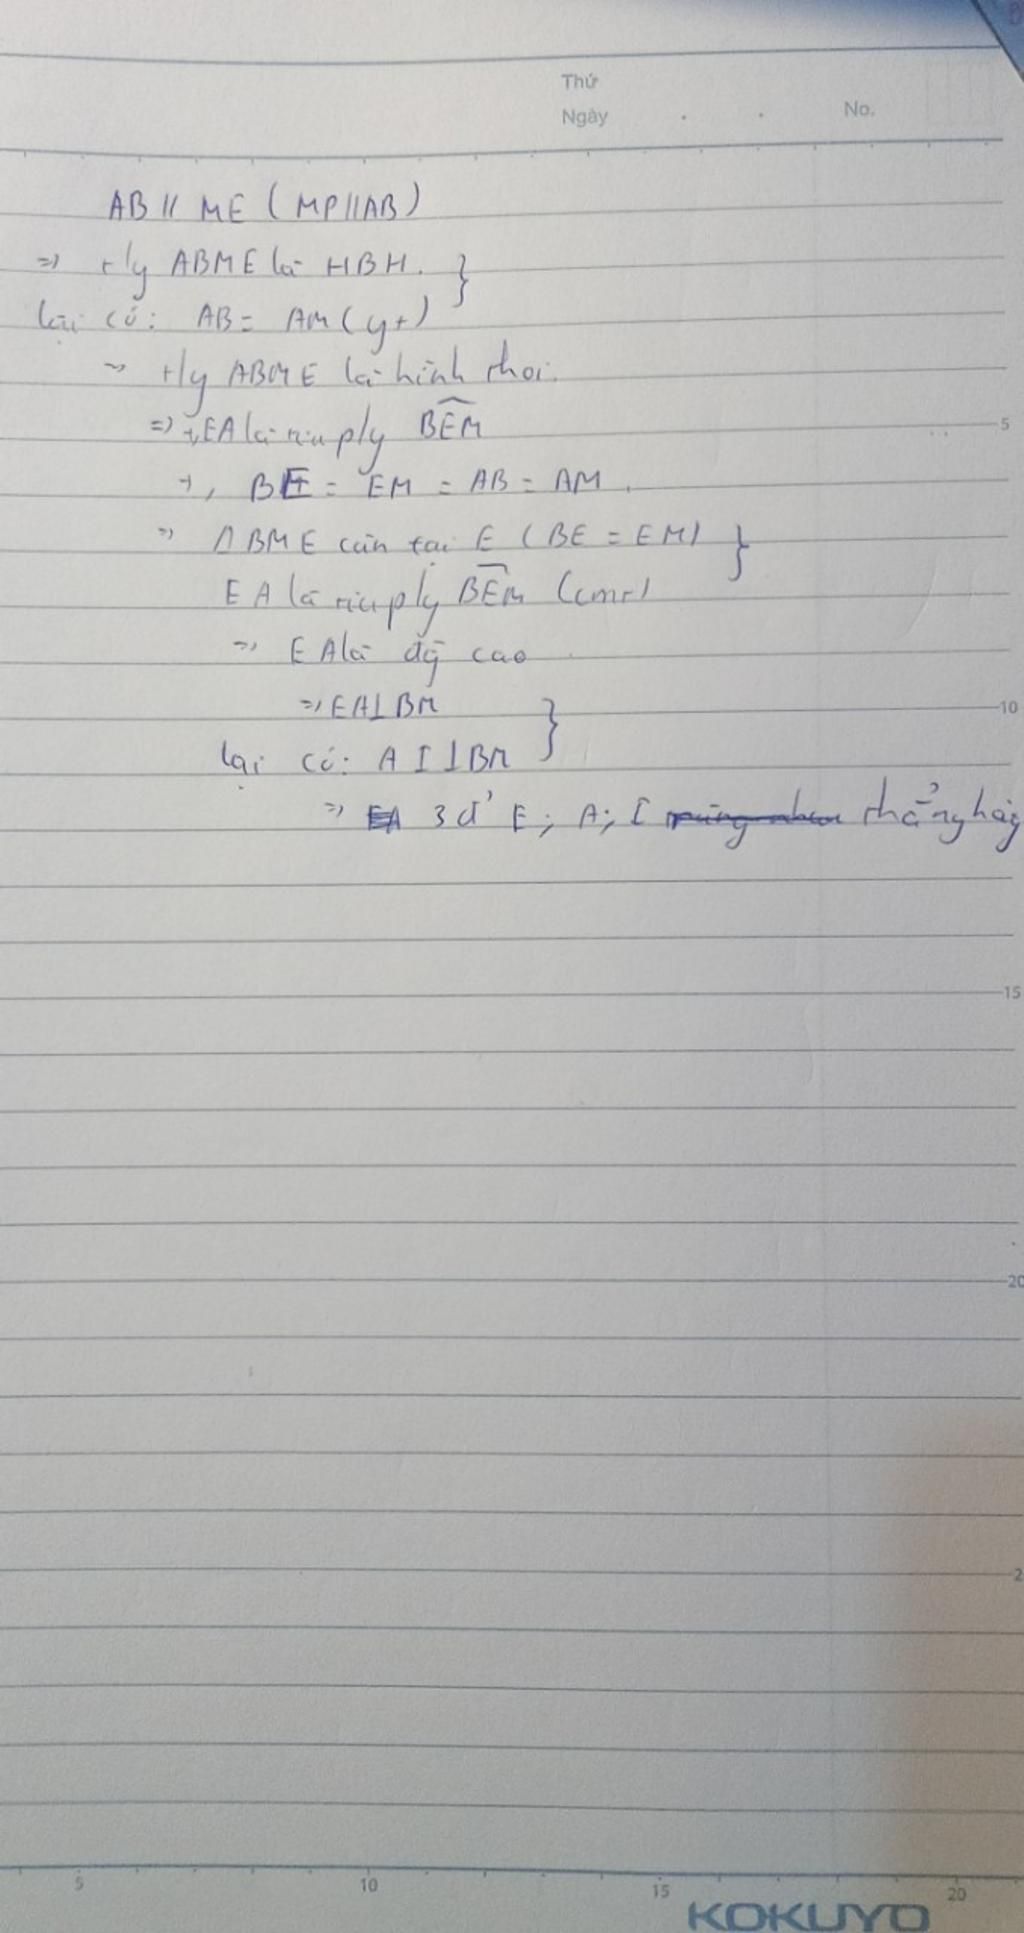 Thứ
Ngày . . No.
AB // ME ( MP // AB )
=> t/g ABME là HBH. }
lại có: AB = AM ( gt )
=> t/g ABME là hình thoi.
=> +, EA là tia p/g BEM
+, BE = EM = AB = AM .
=> Δ BME cân tại E ( BE = EM ) }
EA là tia p/g BEM (cmt)
=> EA là đg cao
=> EA ⊥ BM }
lại có: AI ⊥ BM
=> 3 đ' E ; A ; I thẳng hàg
5
10
15
20
2
5 10 15 20
KOKUYO